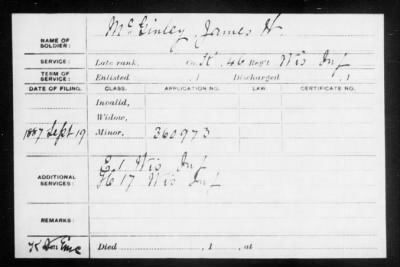 NAME OF SOLDIER: McGinley, James H.
SERVICE: Late rank, Co K, 46 Reg't Wis Inf
TERM OF SERVICE: Enlisted , 1 Discharged , 1
DATE OF FILING. CLASS. APPLICATION NO. LAW. CERTIFICATE NO.
Invalid,
Widow,
1887 Sept 19 Minor, 360973
ADDITIONAL SERVICES: E 1 Wis Inf
H 17 Wis Inf
REMARKS:
Died , 1 , at